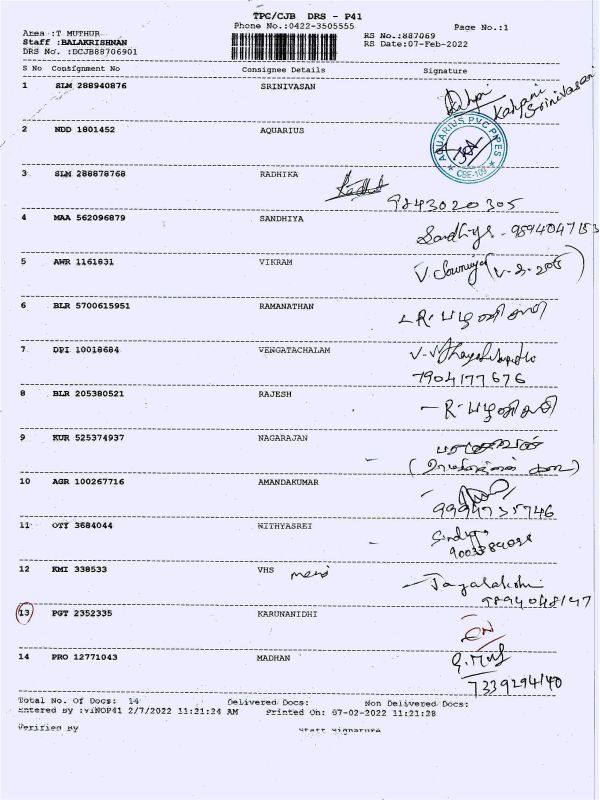 TPC/CJB DRS - P41
Phone No.:0422-3505555
Page No.:1
Area :T MUTHUR
Staff :BALAKRISHNAN
DRS No. :DCJB88706901
RS No.:887069
RS Date:07-Feb-2022
S No Consignment No Consignee Details Signature
1 SLM 288940876 SRINIVASAN Kalpani Srinivasan
2 NDD 1801452 AQUARIUS AQUARIUS PVC PIPES CBE-109
3 SLM 288878768 RADHIKA 9843020305
4 MAA 562096879 SANDHIYA Sandhiya - 9894047153
5 AWR 1161831 VIKRAM
6 BLR 5700615951 RAMANATHAN R. பழனிசாமி
7 DPI 10018684 VENGATACHALAM
7904177676
8 BLR 205380521 RAJESH - R. பழனிசாமி
9 KUR 525374937 NAGARAJAN
10 AGR 100267716 AMANDAKUMAR
9994735746
11 OTT 3684044 NITHYASREI
9003384028
12 KMI 338533 VHS
9894048147
13 PGT 2352335 KARUNANIDHI
14 PRO 12771043 MADHAN
7339294140
Total No. Of Docs: 14 Delivered Docs: Non Delivered Docs:
Entered By :VINOP41 2/7/2022 11:21:24 AM Printed On: 07-02-2022 11:21:28
Verified By Staff Signature